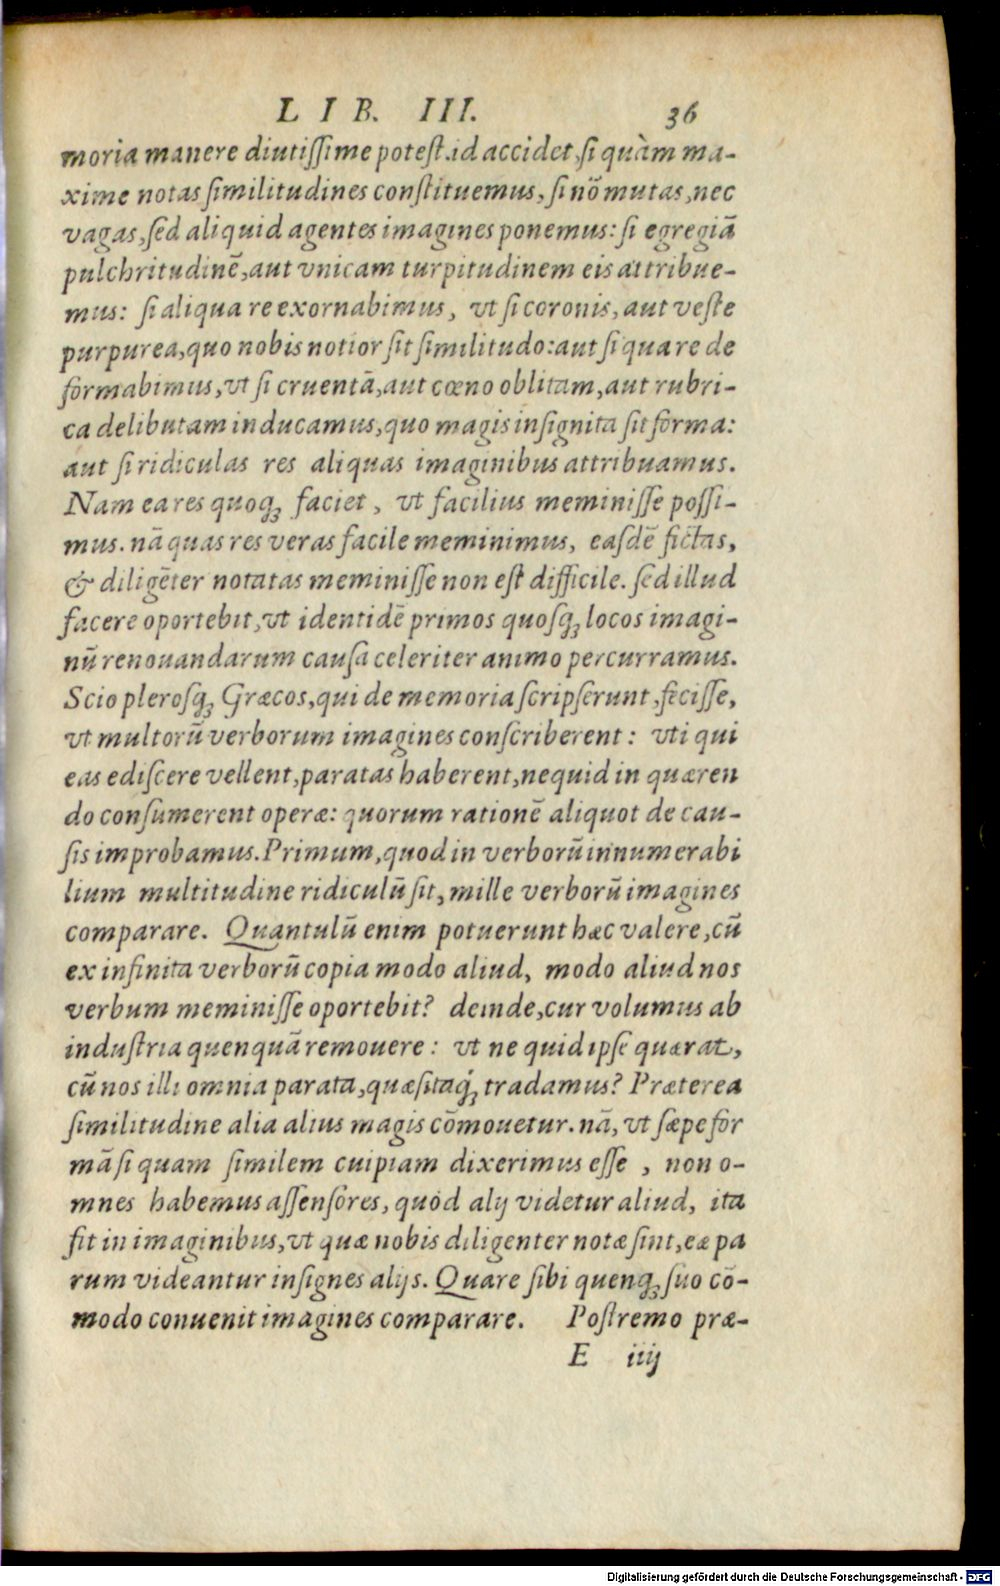 LIB. III. 36
moria manere diutiſſime poteſt.id accidet, ſi quàm ma-
xime notas ſimilitudines conſtituemus, ſi nõ mutas, nec
vagas, ſed aliquid agentes imagines ponemus: ſi egregiã
pulchritudinẽ, aut vnicam turpitudinem eis attribue-
mus: ſi aliqua re exornabimus, vt ſi coronis, aut veſte
purpurea, quo nobis notior ſit ſimilitudo: aut ſi qua re de
formabimus, vt ſi cruentã, aut cœno oblitam, aut rubri-
ca delibutam inducamus, quo magis inſignita ſit forma:
aut ſi ridiculas res aliquas imaginibus attribuamus.
Nam ea res quoq; faciet, vt facilius meminiſſe poſſi-
mus. nã quas res veras facile meminimus, eaſdẽ fictas,
& diligẽter notatas meminiſſe non eſt difficile. ſed illud
facere oportebit, vt identidẽ primos quoſq; locos imagi-
nũ renouandarum cauſa celeriter animo percurramus.
Scio pleroſq; Græcos, qui de memoria ſcripſerunt, feciſſe,
vt multorũ verborum imagines conſcriberent: vti qui
eas ediſcere vellent, paratas haberent, ne quid in quæren
do conſumerent operæ: quorum rationẽ aliquot de cau-
ſis improbamus. Primum, quod in verborũ innumerabi
lium multitudine ridiculũ ſit, mille verborũ imagines
comparare. Quantulũ enim potuerunt hæc valere, cũ
ex infinita verborũ copia modo aliud, modo aliud nos
verbum meminiſſe oportebit? deinde, cur volumus ab
induſtria quenquã remouere: vt ne quid ipſe quærat,
cũ nos illi omnia parata, quæſitaq́; tradamus? Præterea
ſimilitudine alia alius magis cõmouetur. nã, vt ſæpe for
mã ſi quam ſimilem cuipiam dixerimus eſſe, non o-
mnes habemus aſſenſores, quòd alij videtur aliud, ita
fit in imaginibus, vt quæ nobis diligenter notæ ſint, eæ pa
rum videantur inſignes alijs. Quare ſibi quenq; ſuo cõ-
modo conuenit imagines comparare. Poſtremo præ-
E iiij
Digitalisierung gefördert durch die Deutsche Forschungsgemeinschaft - DFG